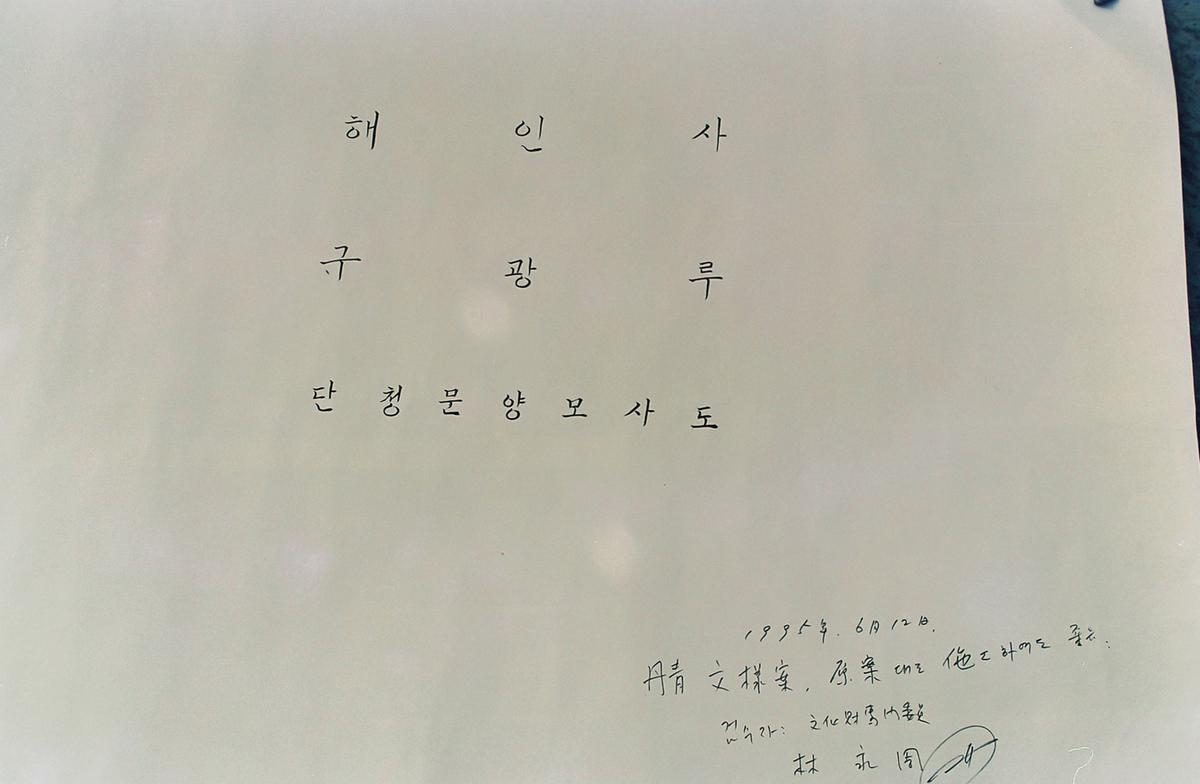 해 인 사
구 광 루
단 청 문 양 모 사 도
1995年. 6月 12日.
丹靑 文樣案, 原案대로 施工하여도 좋음.
검수자: 文化財專門委員
林 永 周